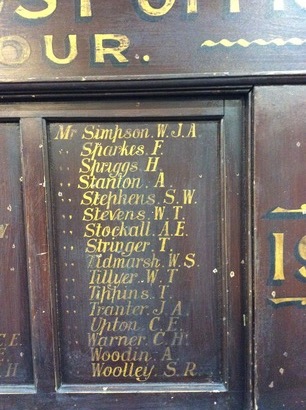 ST OFFI
OUR..
Mr Simpson. W.J.A.
" Sparkes. F.
" Spriggs. H.
" Stanton. A.
" Stephens. S.W.
" Stevens. W.T.
" Stockall. A.E.
" Stringer. T.
" Tidmarsh. W.S.
" Tillyer. W.T
" Tippins. T.
" Tranter. J.A.
" Upton. C.E.
" Warner. C.H.
" Woodin. A.
" Woolley. S.R.
C.E.
H